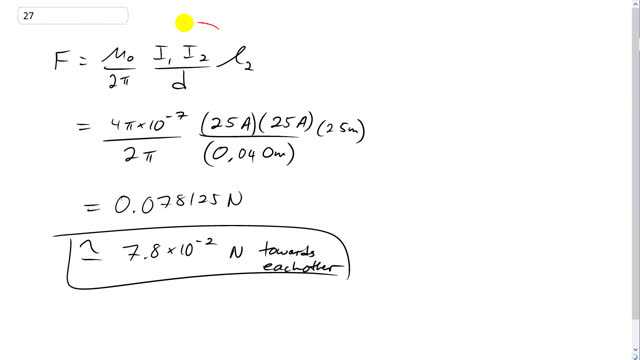 27
F = μ₀/2π I₁ I₂/d ℓ₂
= 4π×10⁻⁷/2π (25A)(25A)/(0.040m) (25m)
= 0.078125 N
≃ 7.8×10⁻² N towards
eachother